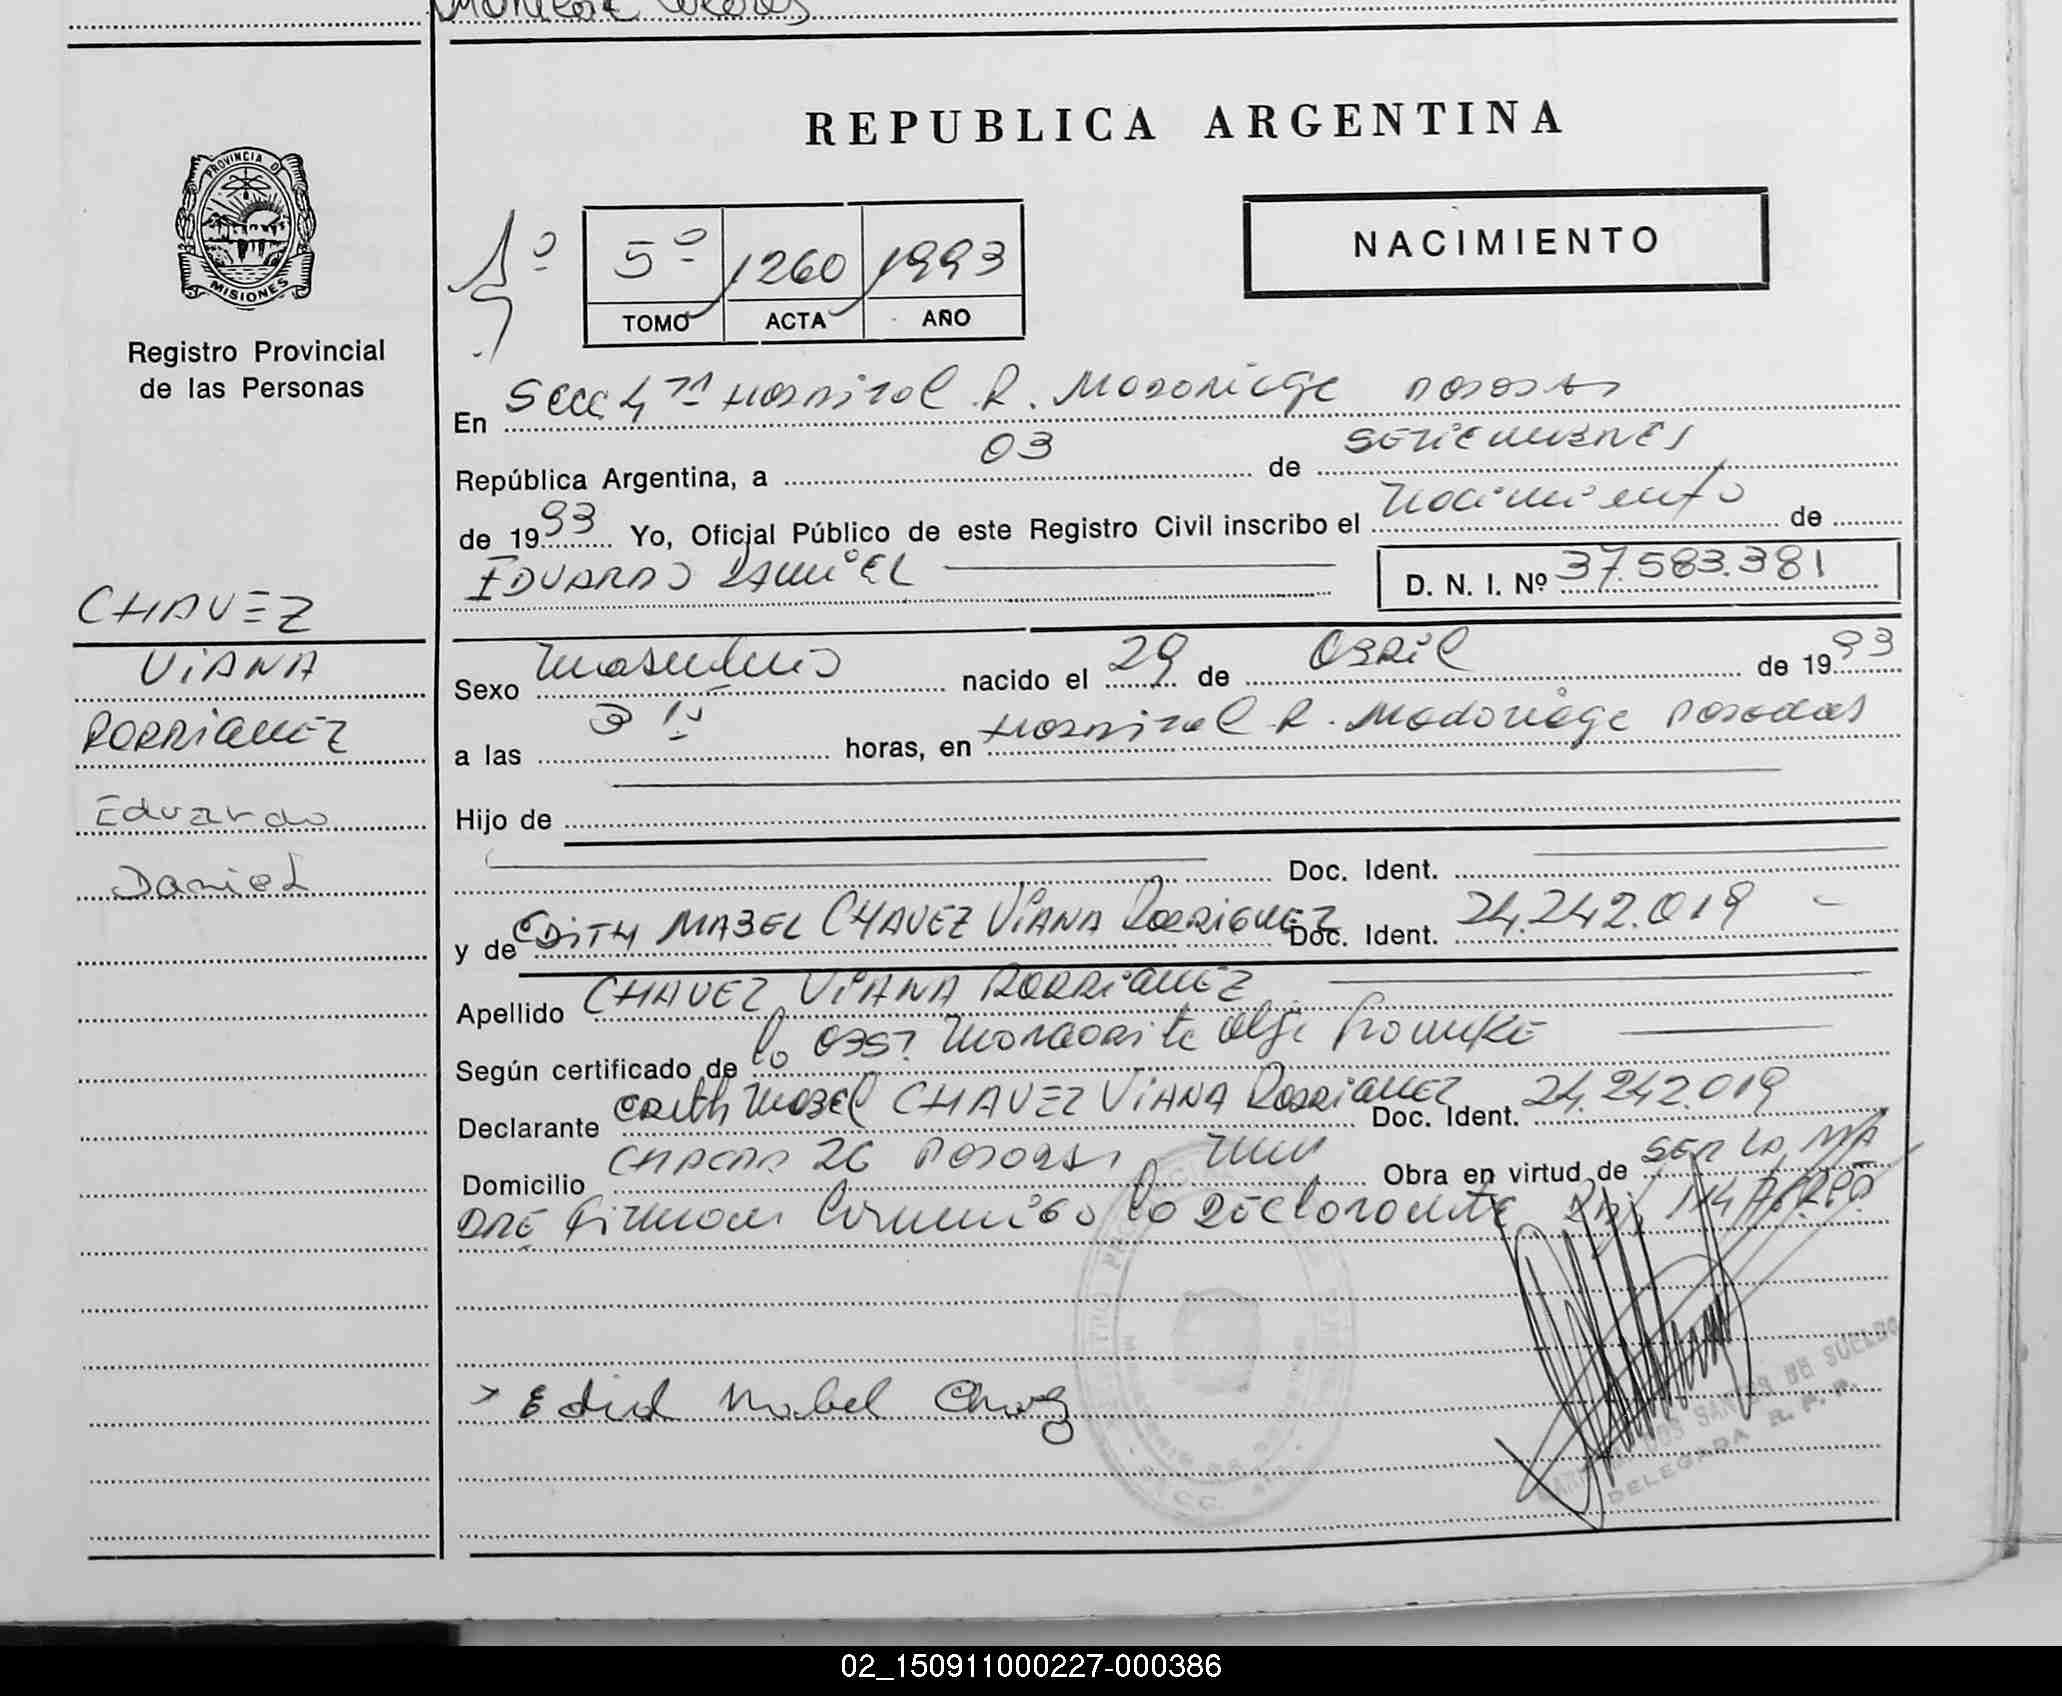 REPUBLICA ARGENTINA
PROVINCIA DE
MISIONES
Registro Provincial
de las Personas
1º
5º 1260 1993
TOMO ACTA AÑO
NACIMIENTO
En Secc 4ta Hospital R. Madariaga Posadas
República Argentina, a 03 de SETIEMBRE
de 1993 Yo, Oficial Público de este Registro Civil inscribo el Nacimiento de
EDUARDO DANIEL D. N. I. Nº 37.583.381
CHAVEZ
VIANA
RODRIGUEZ
Eduardo
Daniel
Sexo Masculino nacido el 29 de Abril de 1993
a las 3 15 horas, en Hospital R. Madariaga Posadas
Hijo de
Doc. Ident.
y de EDITH MABEL CHAVEZ VIANA RODRIGUEZ Doc. Ident. 24.242.019
Apellido CHAVEZ VIANA RODRIGUEZ
Según certificado de la Obst. Margarita Olga
Declarante Edith Mabel CHAVEZ VIANA RODRIGUEZ Doc. Ident. 24.242.019
Domicilio CHACRA 26 POSADAS Obra en virtud de SER LA MA
DRE Firman conmigo la Declarante
Edid Mabel Chavez
DOS SANTOS DE SUELDO
DELEGADA R. P. P.
02_150911000227-000386